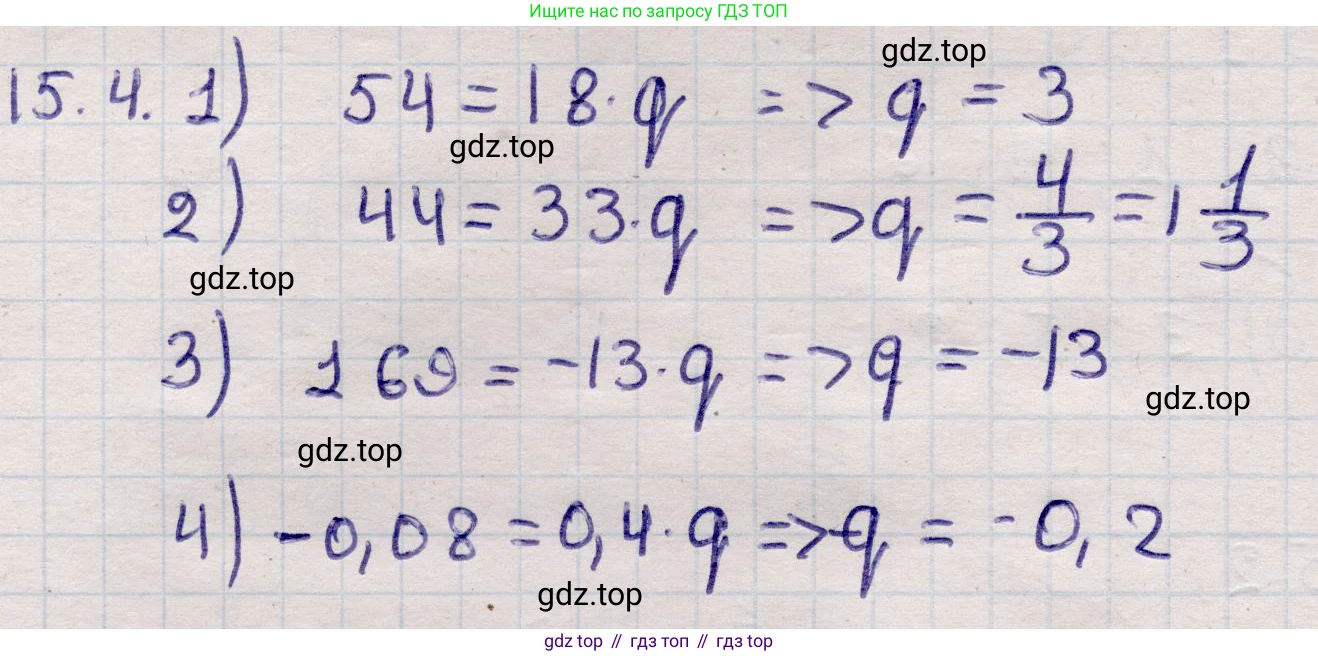 Ищите нас по запросу ГДЗ ТОП
gdz.top
15.4. 1) 54 = 18 · q => q = 3
gdz.top
2) 44 = 33 · q => q = 4/3 = 1 1/3
gdz.top
3) 169 = -13 · q => q = -13
gdz.top
gdz.top
4) -0,08 = 0,4 · q => q = -0,2
gdz.top
gdz top // гдз топ // gdz top